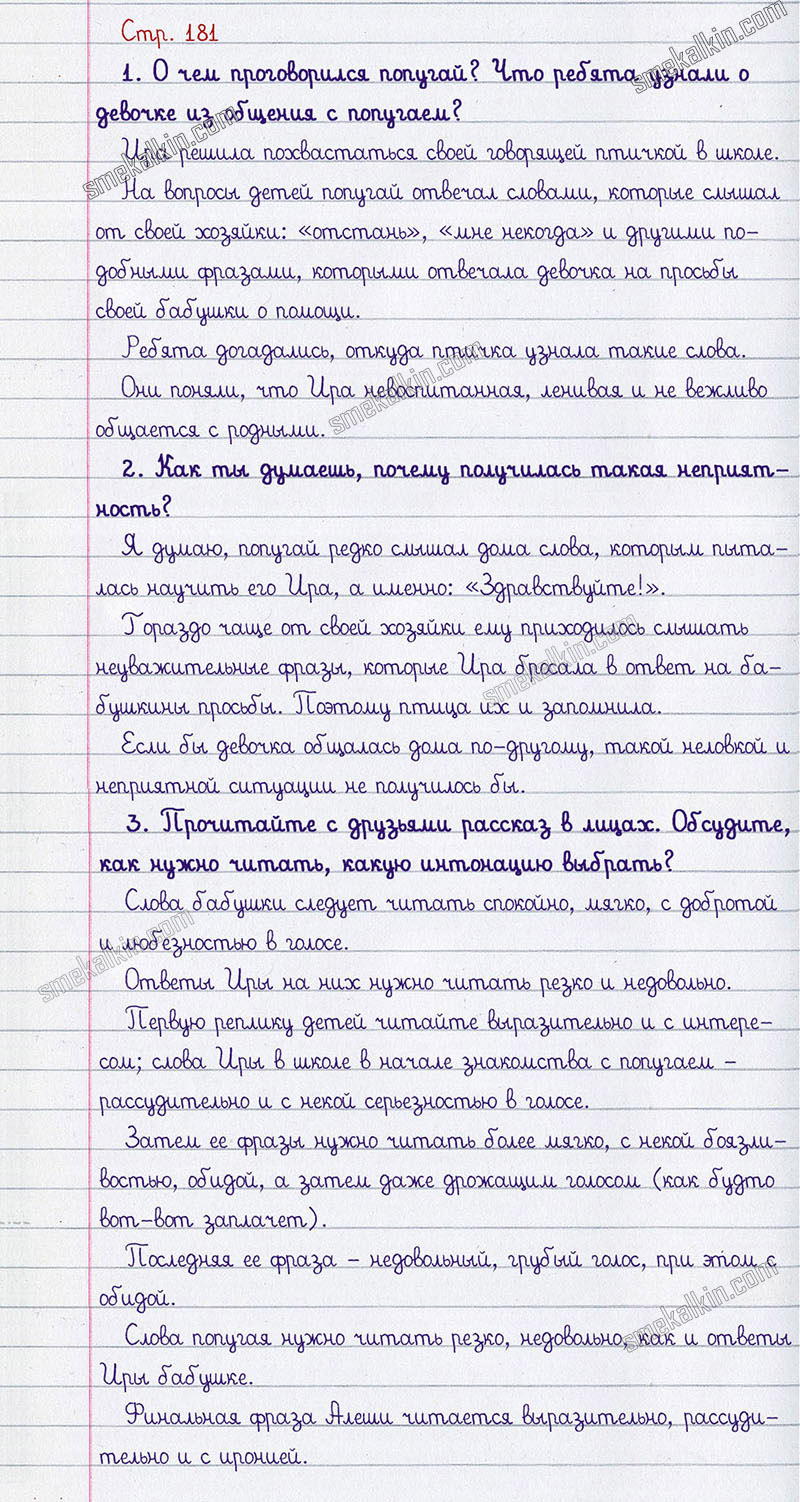 Стр. 181
1. О чем проговорился попугай? Что ребята узнали о
девочке из общения с попугаем?
Ира решила похвастаться своей говорящей птичкой в школе.
На вопросы детей попугай отвечал словами, которые слышал
от своей хозяйки: «отстань», «мне некогда» и другими по-
добными фразами, которыми отвечала девочка на просьбы
своей бабушки о помощи.
Ребята догадались, откуда птичка узнала такие слова.
Они поняли, что Ира невоспитанная, ленивая и не вежливо
общается с родными.
2. Как ты думаешь, почему получилась такая неприят-
ность?
Я думаю, попугай редко слышал дома слова, которым пыта-
лась научить его Ира, а именно: «Здравствуйте!».
Гораздо чаще от своей хозяйки ему приходилось слышать
неуважительные фразы, которые Ира бросала в ответ на ба-
бушкины просьбы. Поэтому птица их и запомнила.
Если бы девочка общалась дома по-другому, такой неловкой и
неприятной ситуации не получилось бы.
3. Прочитайте с друзьями рассказ в лицах. Обсудите,
как нужно читать, какую интонацию выбрать?
Слова бабушки следует читать спокойно, мягко, с добротой
и любезностью в голосе.
Ответы Иры на них нужно читать резко и недовольно.
Первую реплику детей читайте выразительно и с интере-
сом; слова Иры в школе в начале знакомства с попугаем –
рассудительно и с некой серьезностью в голосе.
Затем ее фразы нужно читать более мягко, с некой боязли-
востью, обидой, а затем даже дрожащим голосом (как будто
вот-вот заплачет).
Последняя ее фраза – недовольный, грубый голос, при этом с
обидой.
Слова попугая нужно читать резко, недовольно, как и ответы
Иры бабушке.
Финальная фраза Алеши читается выразительно, рассуди-
тельно и с иронией.
smekalkin.com
smekalkin.com
smekalkin.com
smekalkin.com
smekalkin.com
smekalkin.com